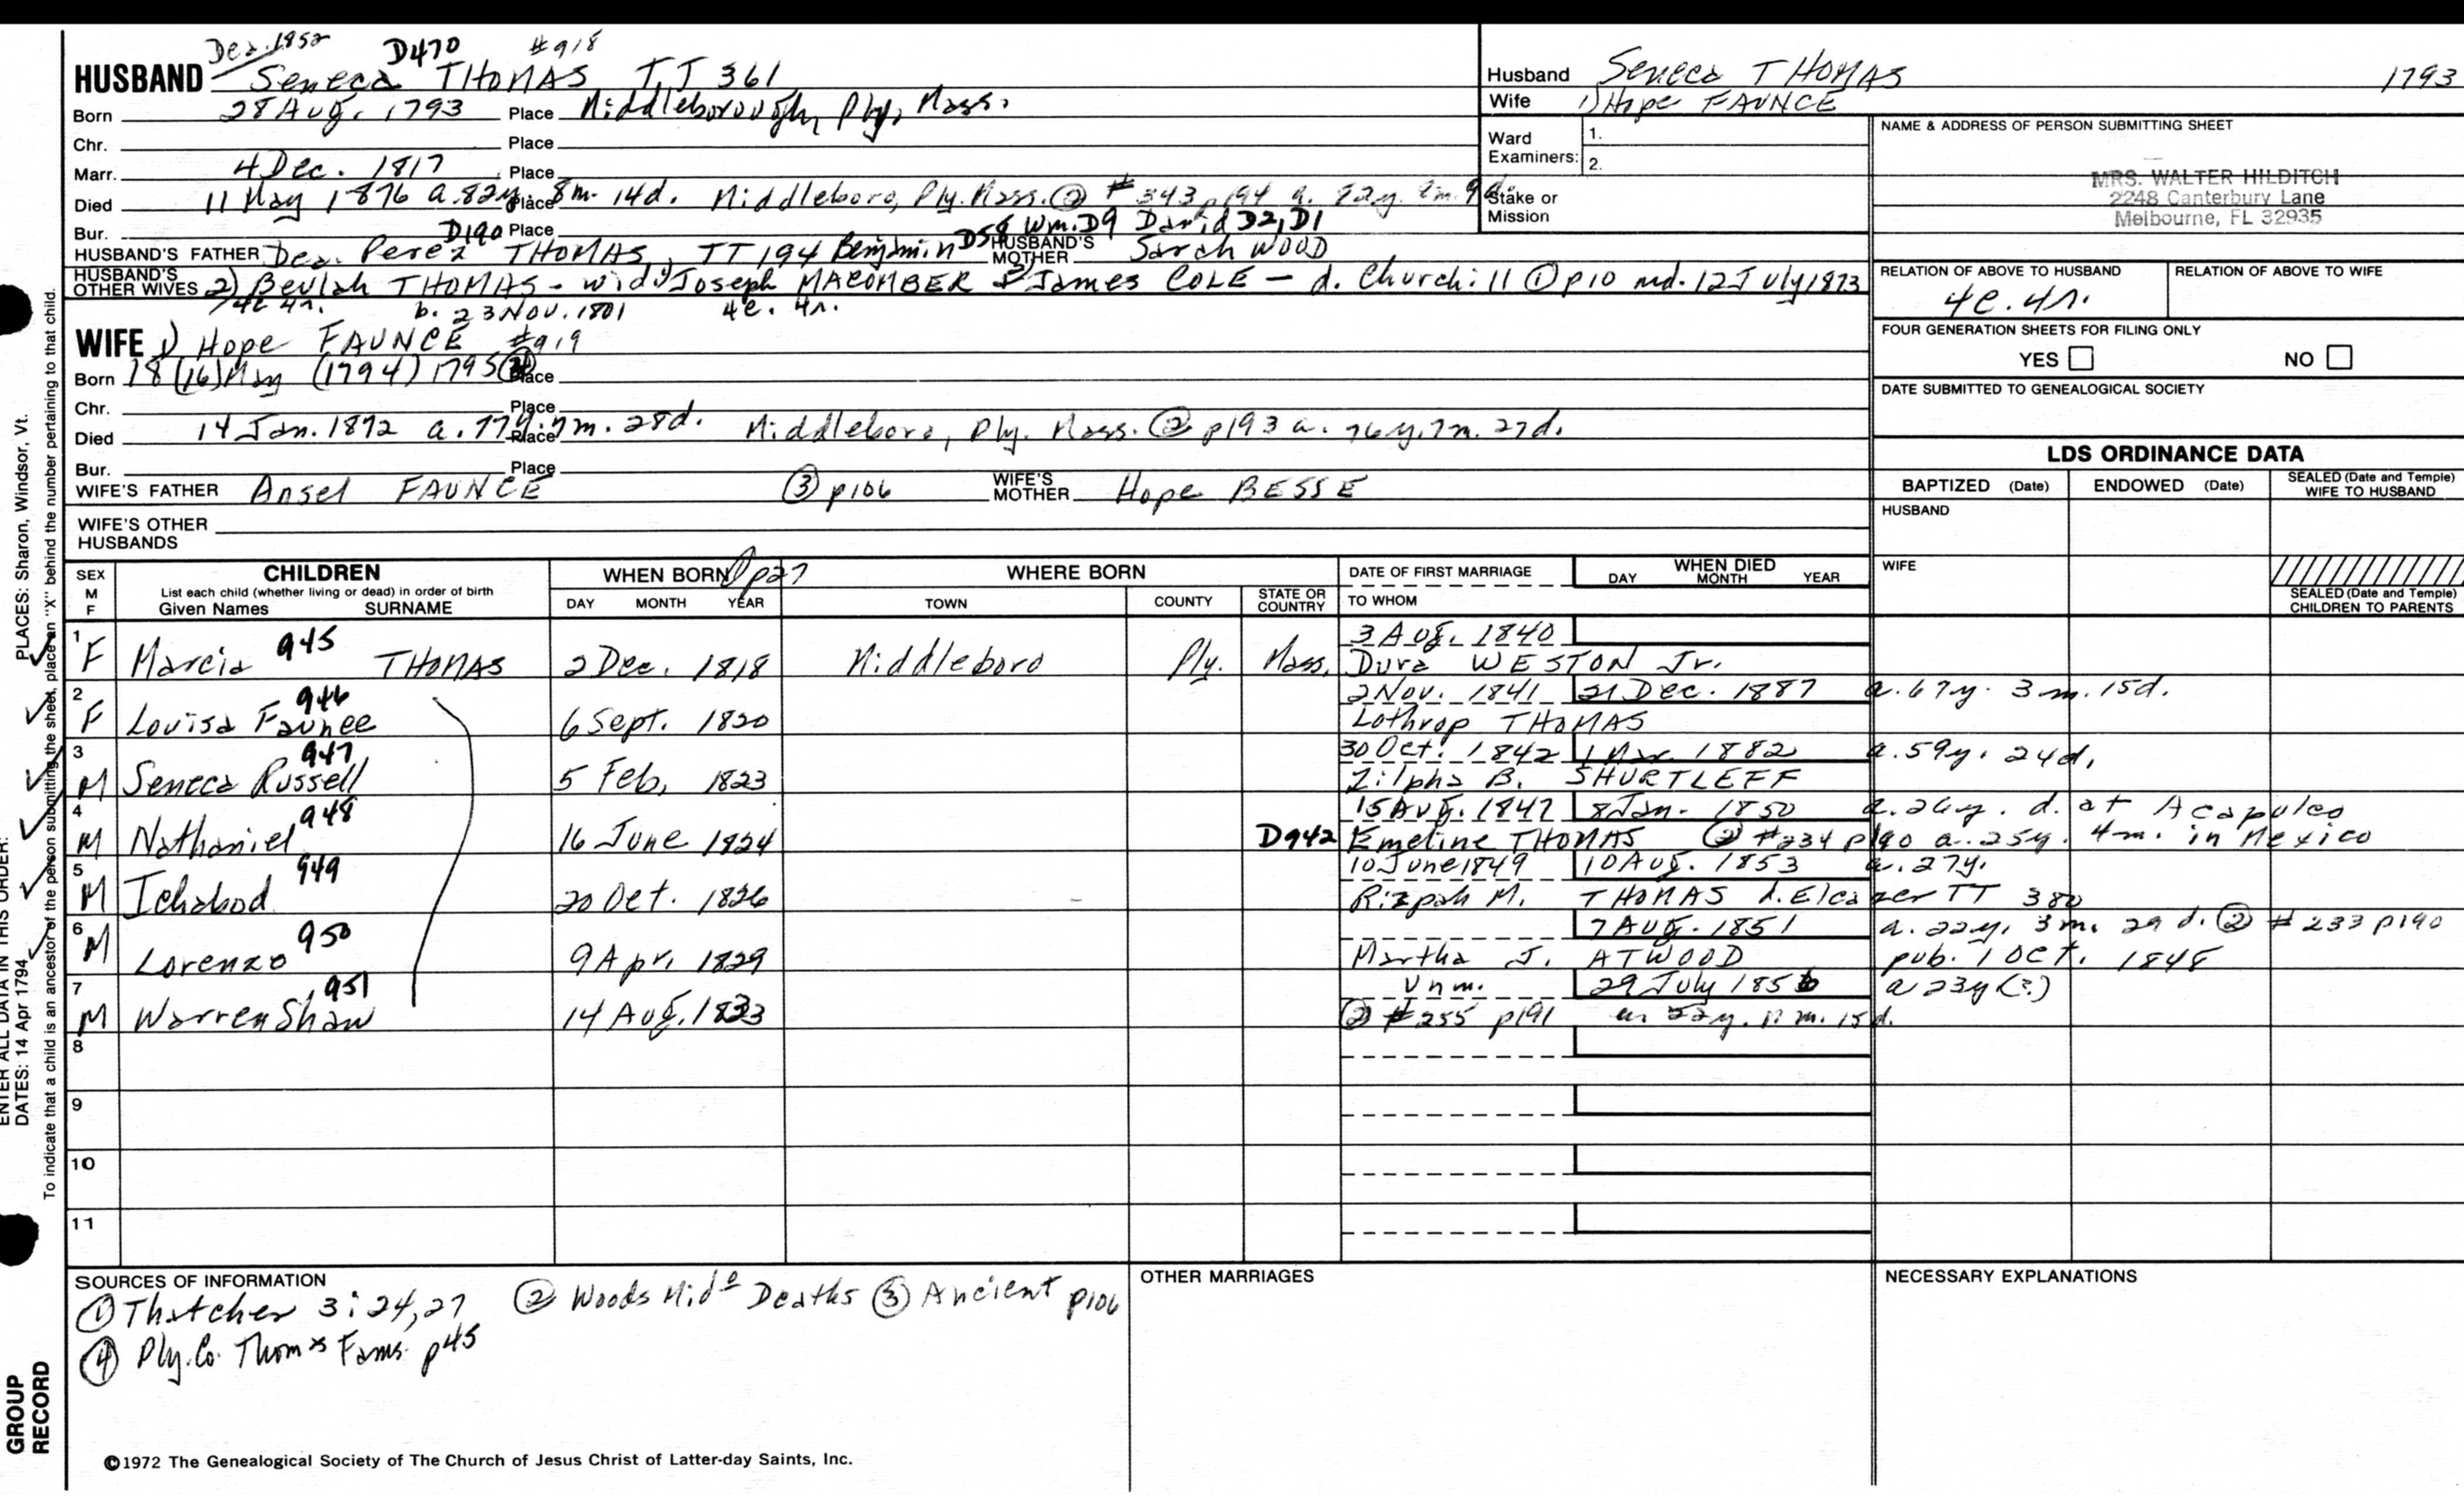 Dea. 1852 D470 #918
HUSBAND Seneca THOMAS TT 361
Born 28 Aug. 1793 Place Middleborough, Ply, Mass.
Chr. Place
Marr. 4 Dec. 1817 Place
Died 11 May 1876 a. 82y. Place 8m. 14d. Middleboro, Ply. Mass. ② #343 p194 a. 82y. 8m. 9d.
Bur. Place
D190 D58 Wm. D9 David D2, D1
HUSBAND'S FATHER Dea. Perez THOMAS, TT 194 Benjamin HUSBAND'S MOTHER Sarah WOOD
HUSBAND'S OTHER WIVES 2) Beulah THOMAS - wid. 1) Joseph MACOMBER & 2) James COLE - d. Churchill ① p10 md. 12 July 1873
4c. 4r. b. 23 Nov. 1801 4c. 4r.
WIFE 1) Hope FAUNCE #919
Born 18 (16) May (1794) 1795 Place
Chr. Place
Died 14 Jan. 1872 a. 77y. Place 7m. 28d. Middleboro, Ply. Mass. ② p193 a. 76y. 7m. 27d.
Bur. Place
WIFE'S FATHER Ansel FAUNCE ③ p106 WIFE'S MOTHER Hope BESSE
WIFE'S OTHER HUSBANDS
Husband Seneca THOMAS 1793
Wife 1) Hope FAUNCE
Ward Examiners: 1.
2.
Stake or Mission
NAME & ADDRESS OF PERSON SUBMITTING SHEET
MRS. WALTER HILDITCH
2248 Canterbury Lane
Melbourne, FL 32935
RELATION OF ABOVE TO HUSBAND RELATION OF ABOVE TO WIFE
4c. 4r.
FOUR GENERATION SHEETS FOR FILING ONLY
YES NO
DATE SUBMITTED TO GENEALOGICAL SOCIETY
LDS ORDINANCE DATA
BAPTIZED (Date) ENDOWED (Date) SEALED (Date and Temple) WIFE TO HUSBAND
HUSBAND
WIFE
SEALED (Date and Temple) CHILDREN TO PARENTS
SEX M F CHILDREN List each child (whether living or dead) in order of birth Given Names SURNAME
WHEN BORN ① p27 DAY MONTH YEAR
WHERE BORN TOWN COUNTY STATE OR COUNTRY
DATE OF FIRST MARRIAGE TO WHOM
WHEN DIED DAY MONTH YEAR
1 945 3 Aug. 1840
F Marcia THOMAS 2 Dec. 1818 Middleboro Ply. Mass. Dura WESTON Jr.
2 946 2 Nov. 1841 21 Dec. 1887 a. 67y. 3m. 15d.
F Louisa Faunce 6 Sept. 1820 Lothrop THOMAS
3 947 30 Oct. 1842 1 Mar. 1882 a. 59y. 24d.
M Seneca Russell 5 Feb. 1823 Zilpha B. SHURTLEFF
4 948 15 Aug. 1847 8 Jan. 1850 a. 26y. d. at Acapulco
M Nathaniel 16 June 1824 D942 Emeline THOMAS ② #234 p190 a. 25y. 4m. in Mexico
5 949 10 June 1849 10 Aug. 1853 a. 27y.
M Ichabod 20 Oct. 1826 Rizpah M. THOMAS d. Eleazer TT 380
6 950 7 Aug. 1851 a. 22y. 3m. 29d. ② #233 p190
M Lorenzo 9 Apr. 1829 Martha J. ATWOOD pub. 1 Oct. 1848
7 951 Unm. 29 July 1856 a 23y (?)
M Warren Shaw 14 Aug. 1833 ② #255 p191 a. 22y. 11m. 15d.
8
9
10
11
SOURCES OF INFORMATION
① Thatcher 3:24,27 ② Woods Mido Deaths ③ Ancient p106
④ Ply. Co. Thomas Fams. p45
OTHER MARRIAGES
NECESSARY EXPLANATIONS
©1972 The Genealogical Society of The Church of Jesus Christ of Latter-day Saints, Inc.
PLACES: Sharon, Windsor, Vt.
ENTER ALL DATA IN THIS ORDER:
DATES: 14 Apr 1794
To indicate that a child is an ancestor of the person submitting the sheet, place an "X" behind the number pertaining to that child.
GROUP
RECORD